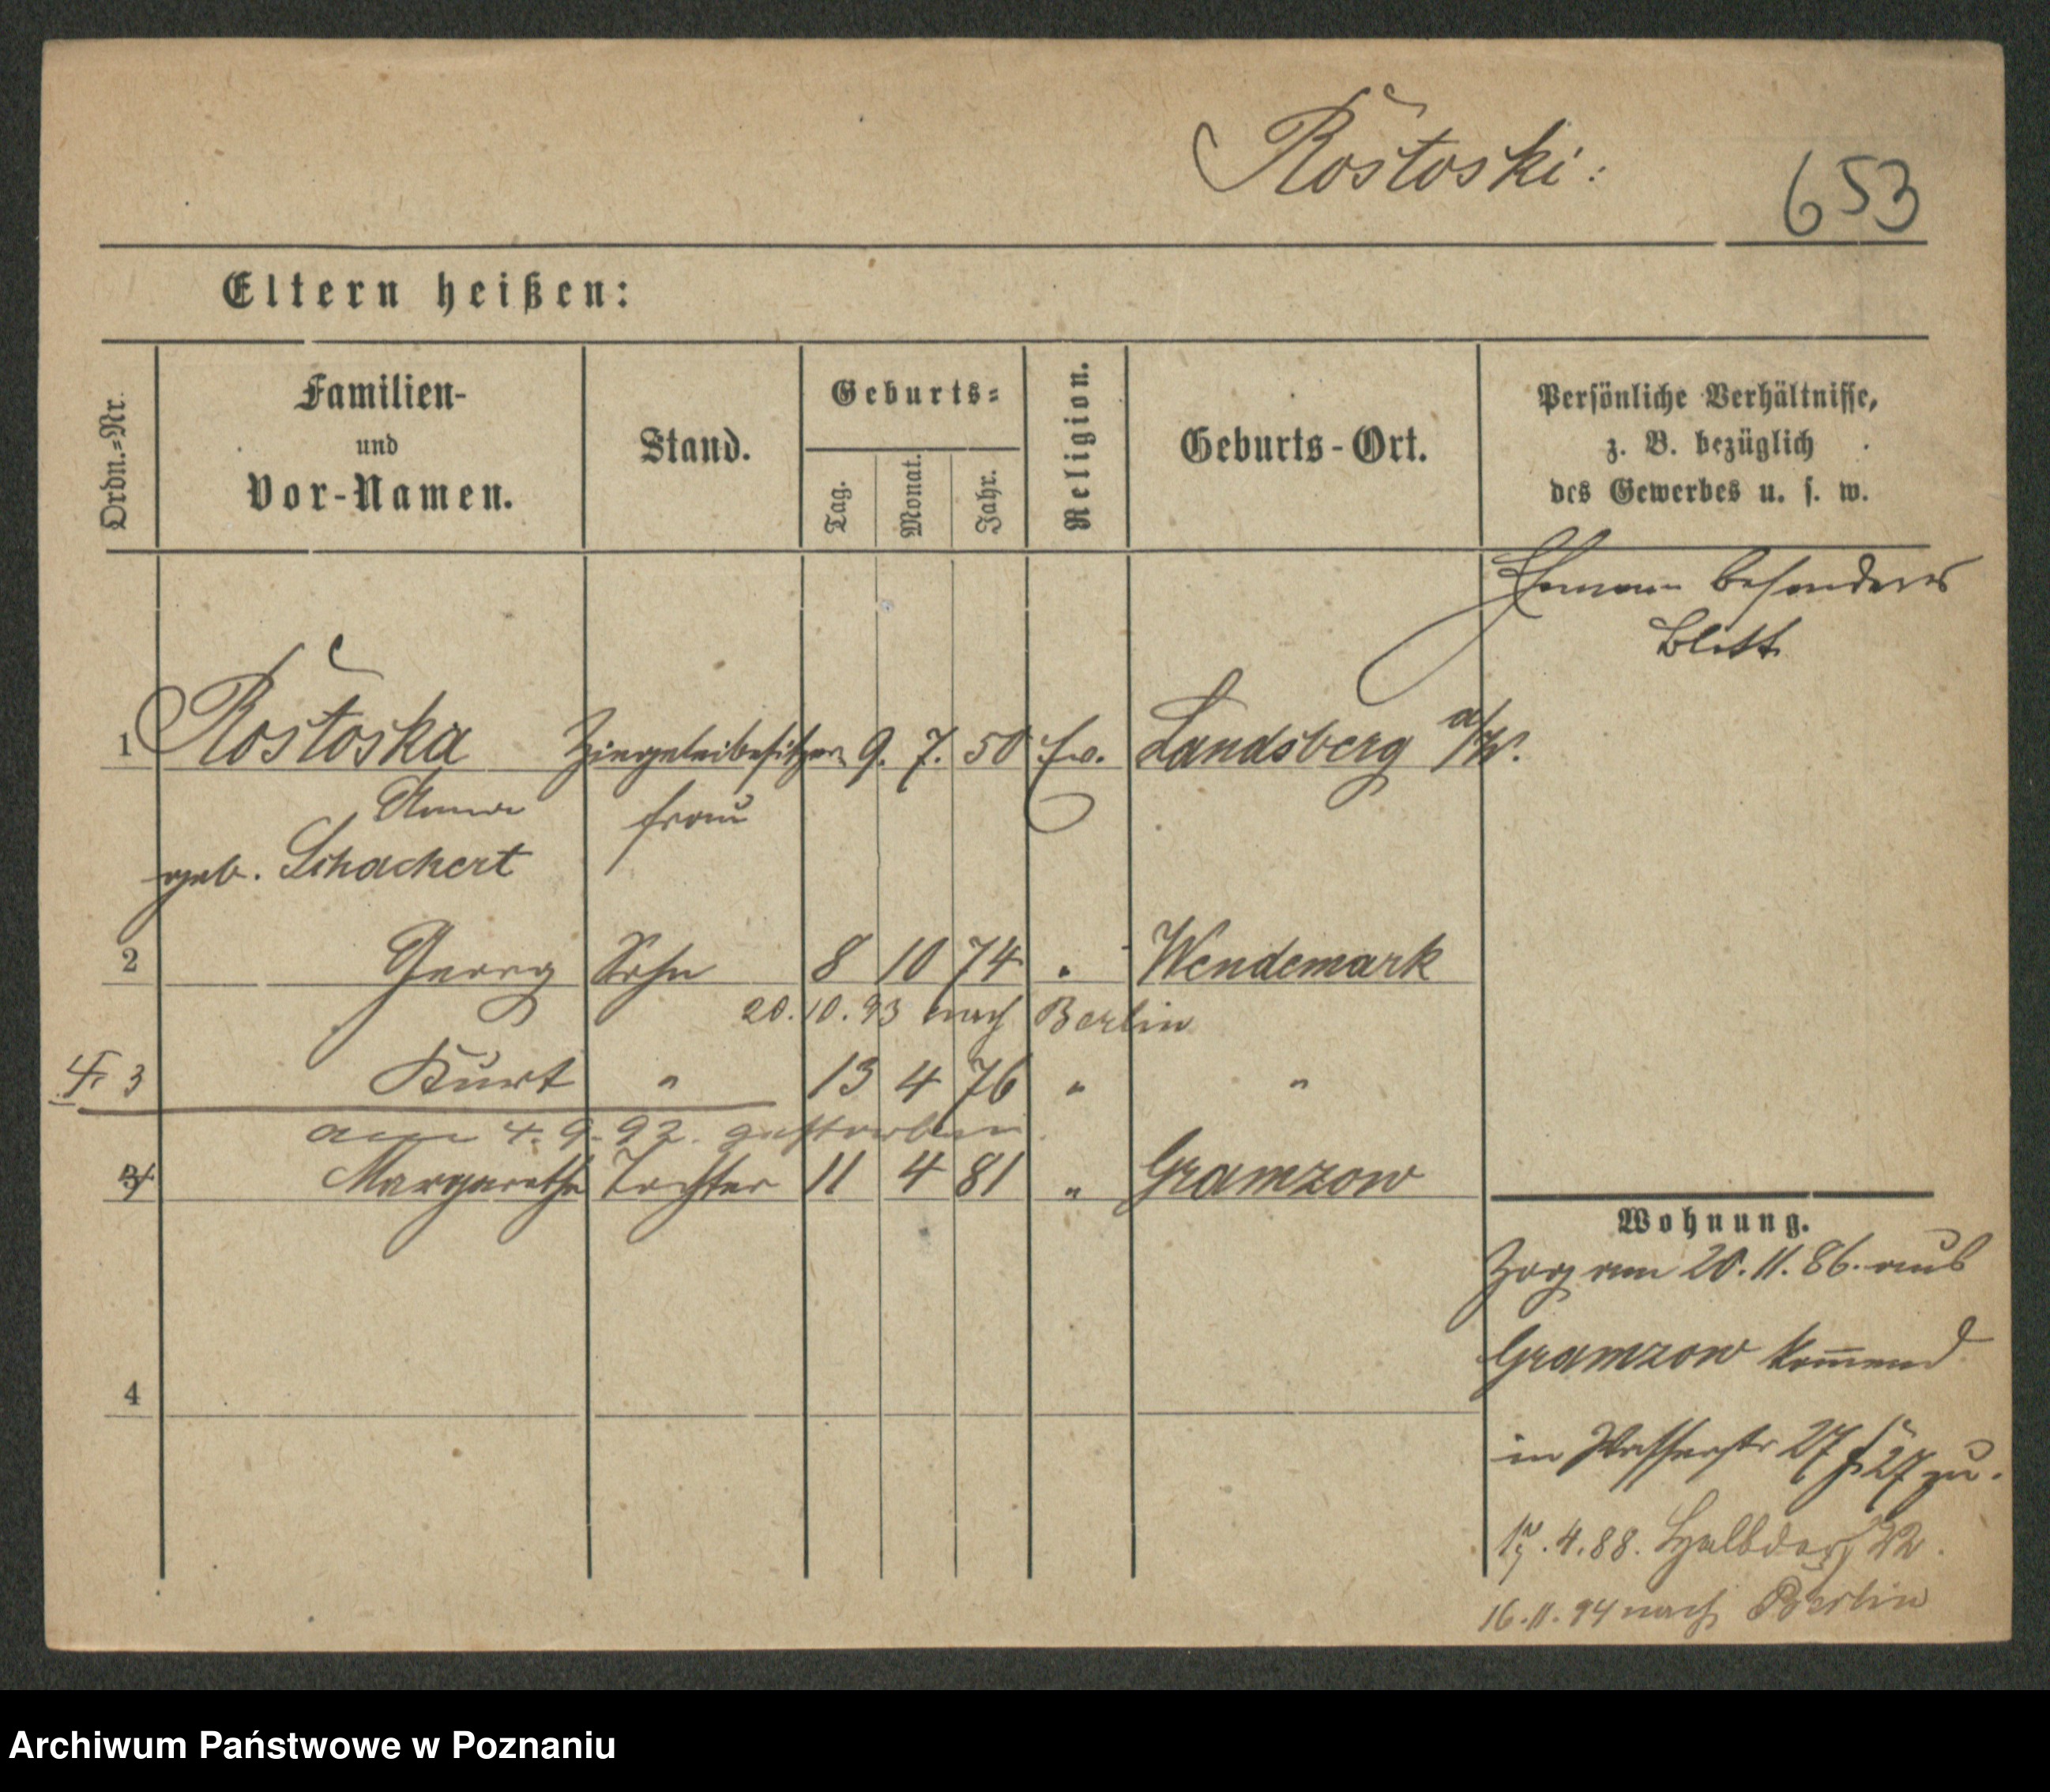 Rostoski:
653
Eltern heißen:
Ordn.=Nr.
Familien-
und
Vor-Namen.
Stand.
Geburts=
Tag.
Monat.
Jahr.
Religion.
Geburts-Ort.
Persönliche Verhältnisse,
z. B. bezüglich
des Gewerbes u. s. w.
Ehemann besonderes
Blatt
1 Rostoska Ziegeleibesitzer 9. 7. 50 Ev. Landsberg a/W.
frau
geb. Schackert
2 Georg Sohn 8 10 74 " Wendemark
20.10.93 nach Berlin
3 Kurt " 13 4 76 " "
am 4.9.92. gestorben
Margarethe Tochter 11 4 81 " Gramzow
4
Wohnung.
Zog am 20.11.86. aus
Gramzow kommend
in Wasserstr 27 27 zu.
17.4.88. Halbdorf 22.
16.11.94 nach Berlin
Archiwum Państwowe w Poznaniu